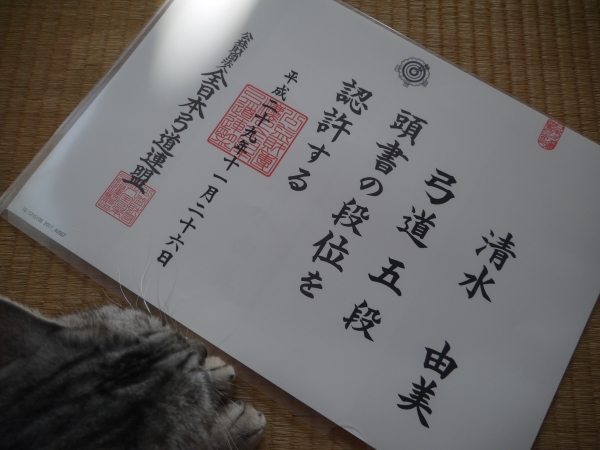 清水 由美
弓道五段
頭書の段位を
認許する
平成二十九年十一月二十六日
公益財団法人全日本弓道連盟